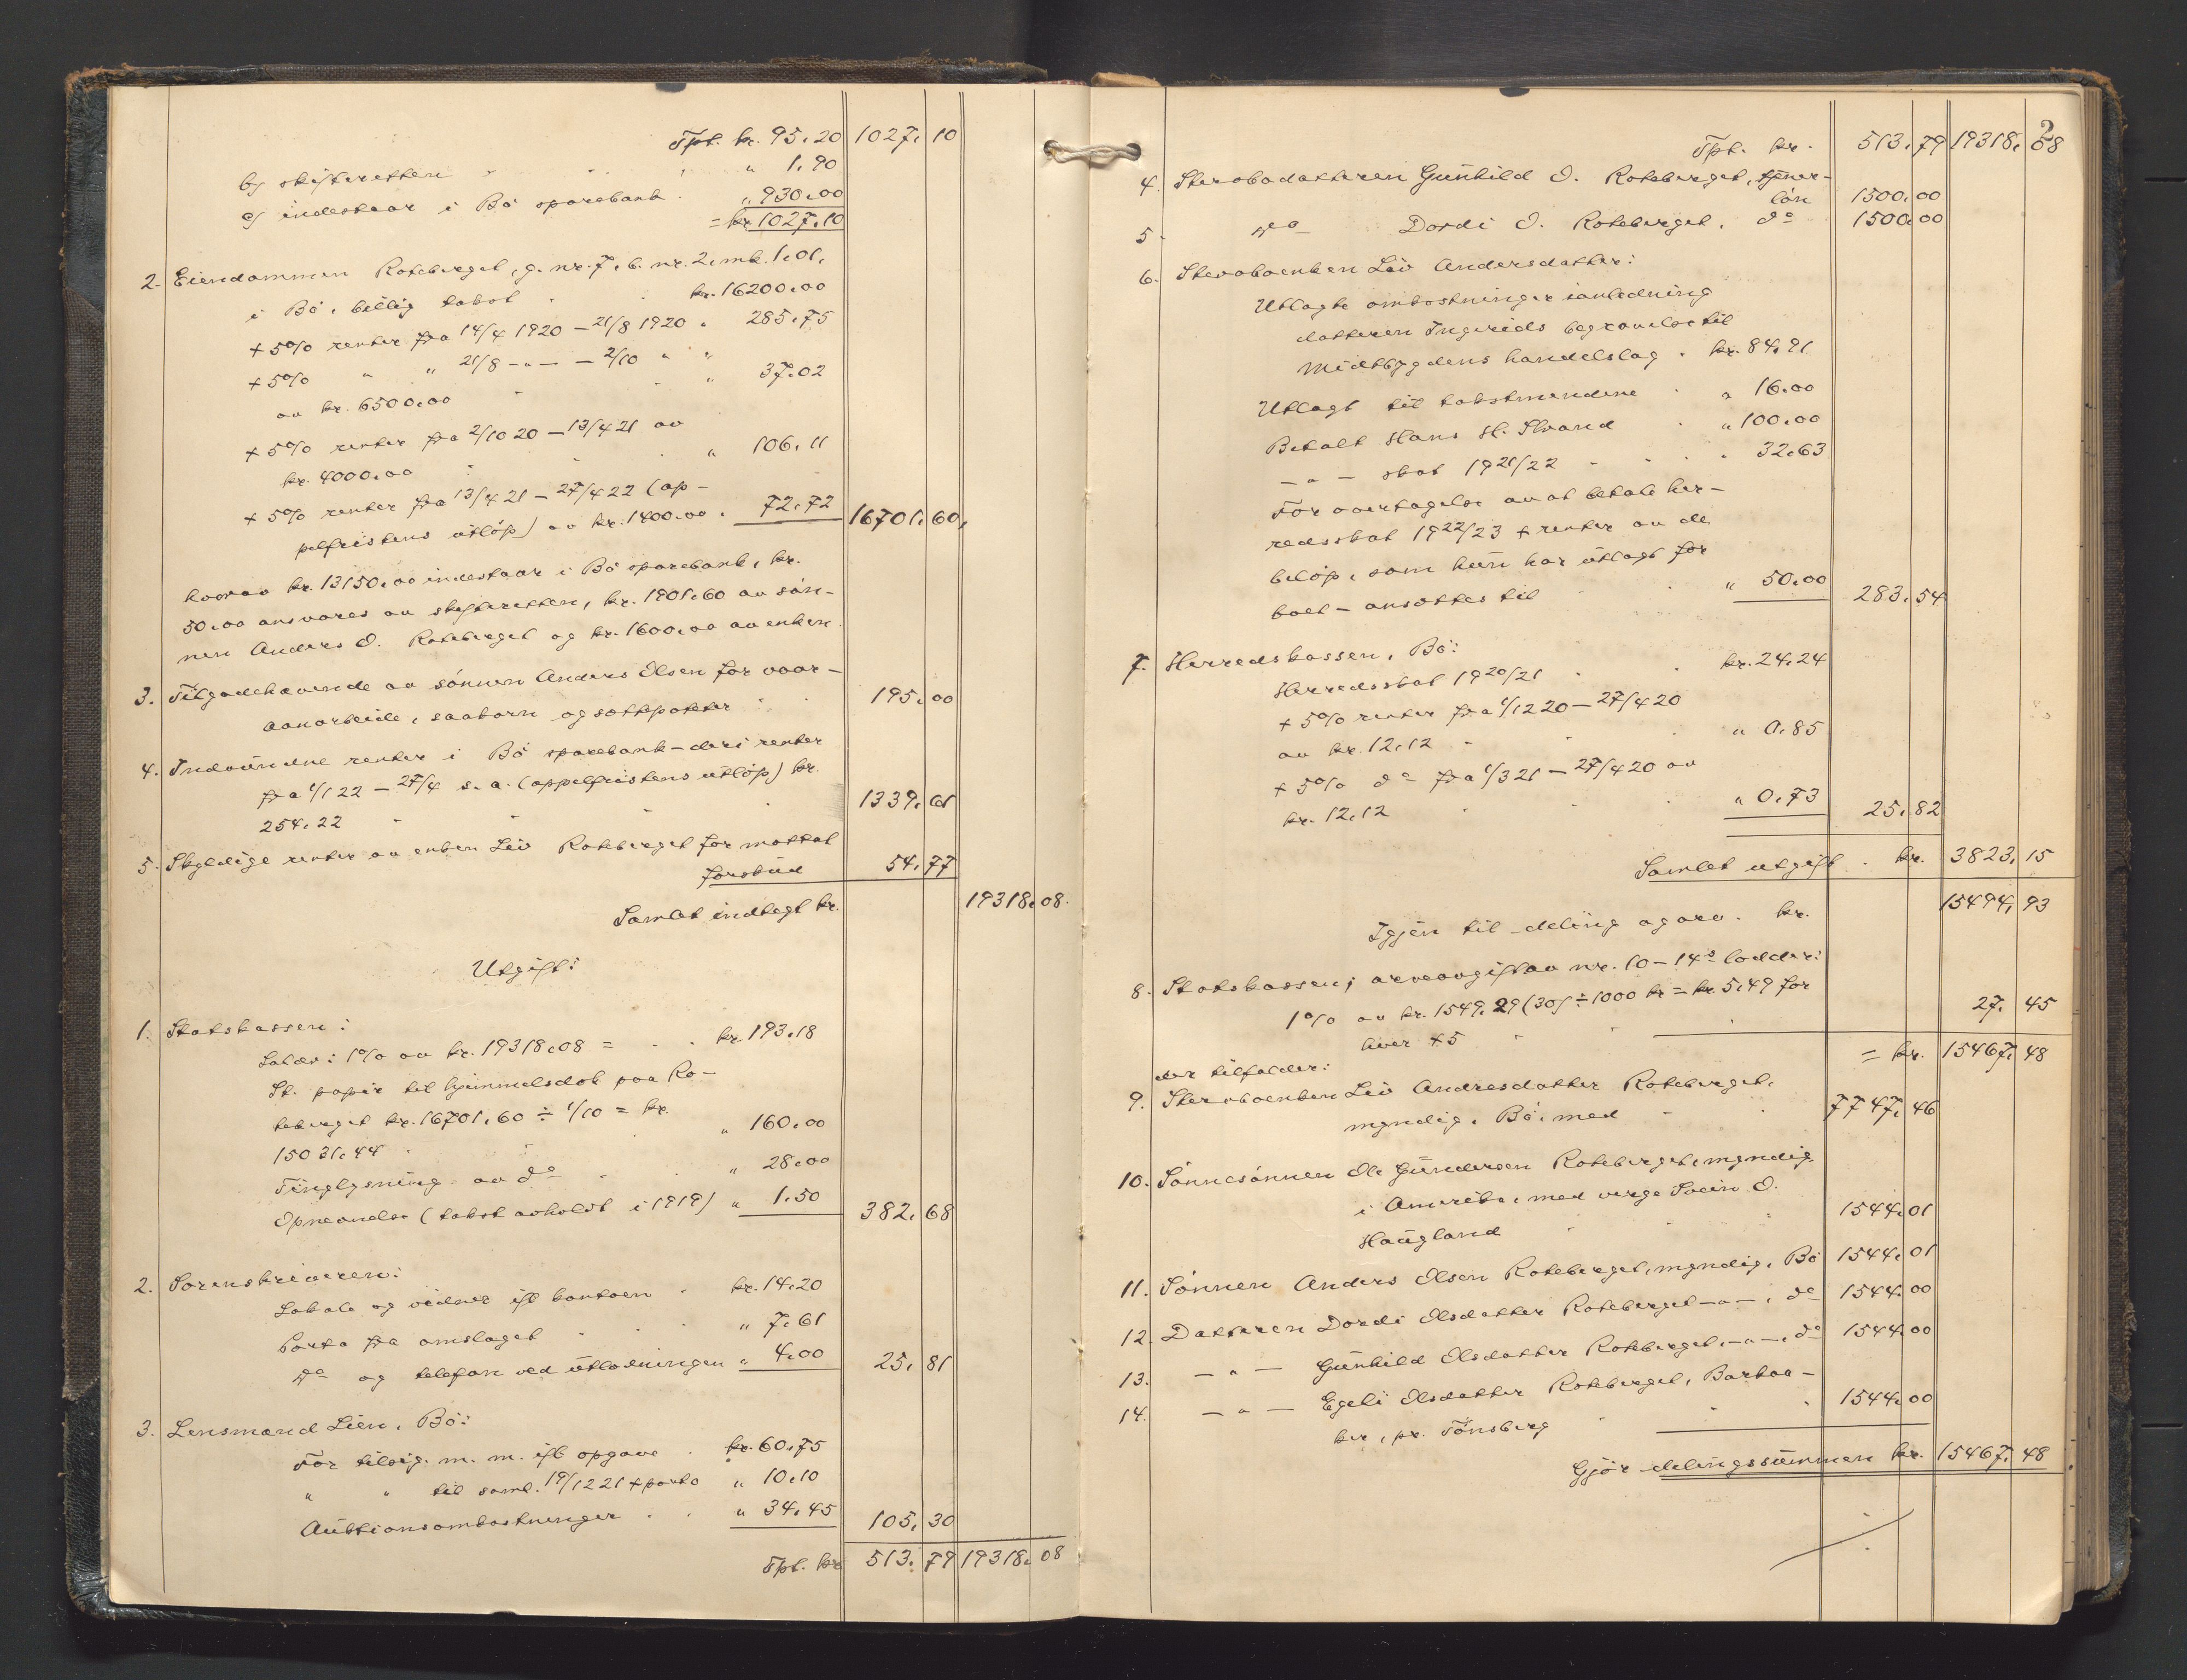 Tpt. kr. 95.20 1027.10
b) skifteretten " 1.90
c) indestaar i Bö sparebank " 930.00
= kr. 1027.10
2. Eiendommen Roteberget, g. nr. 7, b. nr. 2, mk. 1.01,
i Bö, billig takst kr. 16200.00
+ 5% renter fra 14/4 1920 – 21/8 1920 " 285.75
+ 5% " " 21/8 -"- – 2/10 " "
av kr. 6500.00 " 37.02
+ 5% renter fra 2/10 20 – 13/4 21 av
kr. 4000.00 " 106.11
+ 5% renter fra 13/4 21 – 27/4 22 (ap-
pelfristens utløp) av kr. 1400.00 " 72.72 16701.60,
hvorav kr. 13150.00 indestaar i Bö sparebank, kr.
50.00 ansvares av skifteretten, kr. 1901.60 av søn-
nen Anders O. Roteberget og kr. 1600.00 av enken
3. Tilgodehavende av sönnen Anders Olsen for vaar-
aanarbeide, saakorn og sættepoteter 195.00
4. Indvundne renter i Bö sparebank – deri renter
fra 1/1 22 – 27/4 s. a. (appelfristens utlöp) kr.
254.22 1339.61
5. Skyldige renter av enken Liv Roteberget for mottat
forskud 54.77
Samlet indtægt kr. 19318.08.
Utgift:
1. Statskassen:
Salær: 1% av kr. 19318.08 = kr. 193.18
St. papir til hjemmelsdok. paa Ro-
teberget kr. 16701.60 ÷ 1/10 = kr.
15031.44 " 160.00
Tinglysning av do " 28.00
Opnevnelse (takst avholdt i 1919) " 1.50 382.68
2. Sorenskriveren:
Lokale og vidner ifl kontoen kr. 14.20
Porto fra omslaget " 7.61
do og telefon ved utlodningen " 4.00 25.81
3. Lensmand Lien, Bö:
For tilsig. m. m. ifl opgave kr. 60.75
" " til saml. 19/12 21 + porto " 10.10
Auktionsomkostninger " 34.45 105.30
Tpt. kr 513.79 19318.08
2
Tpt. kr. 513.79 19318.08
4. Stervbodatteren Gunhild O. Roteberget, tjener-
lön 1500.00
5. do Dordi O. Roteberget, do 1500.00
6. Stervboenken Liv Andersdatter:
Utlagte omkostninger i anledning
datteren Ingerids begravelse til
Midtbygdens handelslag kr. 84.91
Utlagt til takstmændene " 16.00
Betalt Hans H. Strand " 100.00
– " – skat 1921/22 " 32.63
For overtagelse av at betale her-
redsskat 1922/23 + renter av de
beløp, som hun har utlagt for
boet – ansættes til " 50.00 283.54
7. Herredskassen, Bö:
Herredsskat 1920/21 kr. 24.24
+ 5% renter fra 1/12 20 – 27/4 20
av kr. 12.12 " 0.85
+ 5% do fra 1/3 21 – 27/4 20 av
kr. 12.12 " 0.73 25.82
Samlet utgift kr. 3823.15
Igjen til deling og arv. kr. 15494.93
8. Statskassen; arveavgift av nr. 10 – 14s lodder:
1% av kr. 1549.29 (30) ÷ 1000 kr = kr. 5.49 for
hver × 5 27.45
= kr. 15467.48
der tilfalder:
9. Stervboenken Liv Andresdatter Roteberget,
myndig, Bö, med 7747.46
10. Sönnesönnen Ole Gundersen Roteberget, myndig,
i Amerika, med verge Svein O.
Haugland 1544.01
11. Sönnen Anders Olsen Roteberget, myndig, Bö 1544.01
12. Datteren Dordi Olsdatter Roteberget –"–, do 1544.00
13. – " – Gunhild Olsdatter Roteberget, –"–, do 1544.00
14. – " – Egeli Olsdatter Roteberget, Barkaa-
ker, pr. Tönsberg 1544.00
Gjör delingssummen kr. 15467.48